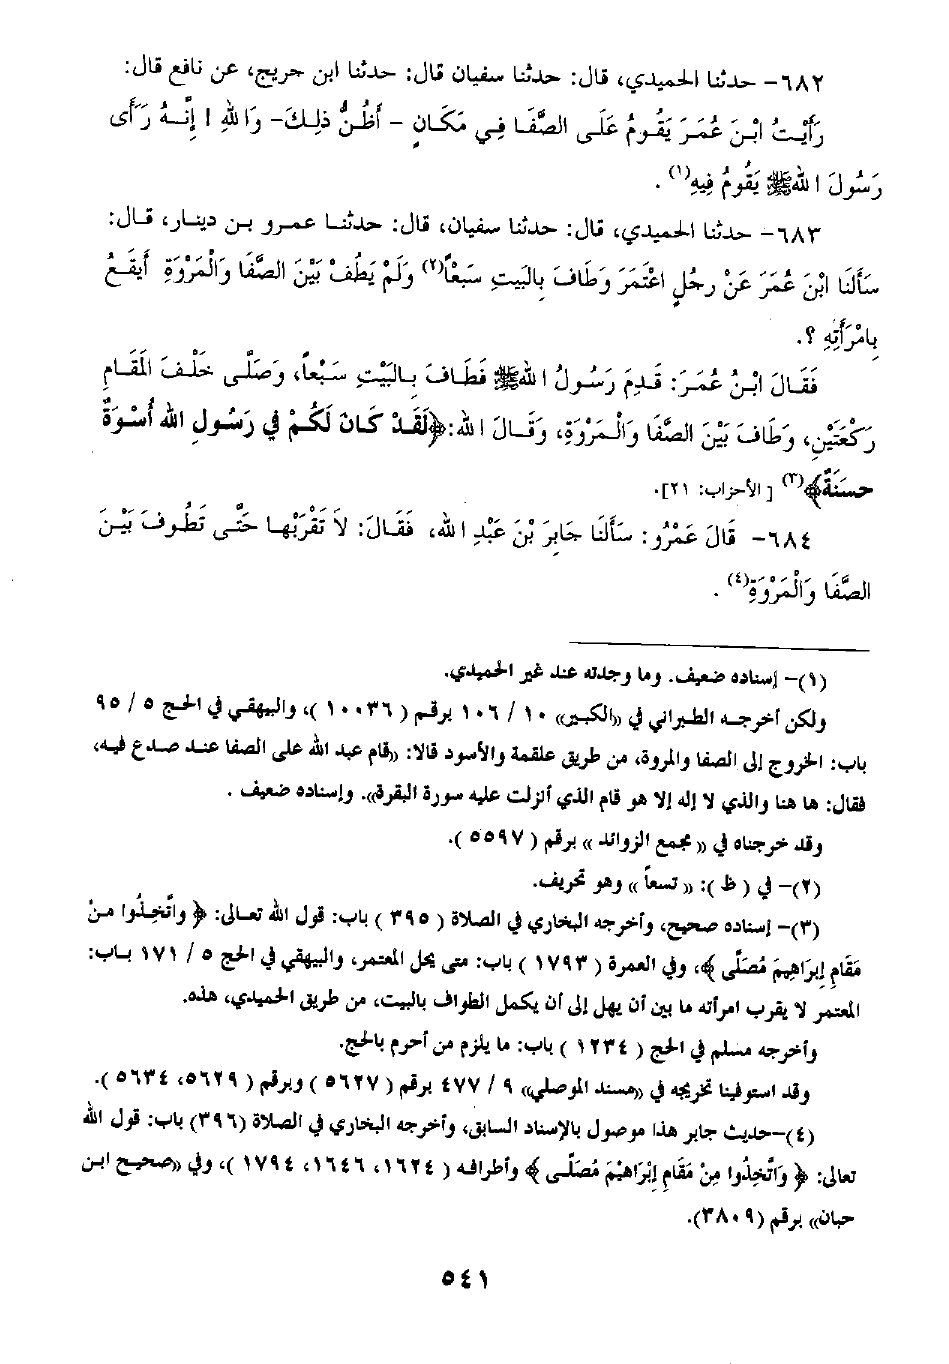 ٦٨٢- حدثنا الحميدي، قال: حدثنا سفيان قال: حدثنا ابن جريج، عن نافع قال:
رَأَيْتُ ابْنَ عُمَرَ يَقُومُ عَلَى الصَّفَا فِي مَكَانٍ - أَظُنُّ ذلِكَ- وَاللهِ ! إِنَّهُ رَأَى
رَسُولَ اللهِ ﷺ يَقُومُ فِيهِ(١) .
٦٨٣- حدثنا الحميدي، قال: حدثنا سفيان، قال: حدثنا عمرو بن دينار، قال:
سَأَلنَا ابْنَ عُمَرَ عَنْ رجُلٍ اعْتَمَرَ وَطَافَ بِالبَيتِ سَبْعاً(٢) وَلَمْ يَطُفْ بَيْنَ الصَّفَا وَالْمَرْوَةِ أَيَقَعُ
بِامْرَأَتِهِ ؟.
فَقَالَ ابْنُ عُمَرَ: قَدِمَ رَسُولُ اللهِ ﷺ فَطَافَ بِالبَيْتِ سَبْعاً، وَصَلَّى خَلْفَ الْمَقَامِ
رَكْعَتَيْنِ، وَطَافَ بَيْنَ الصَّفَا وَالْمَرْوَةِ، وَقَالَ اللهُ: ﴿لَقَدْ كَانَ لَكُمْ في رَسُولِ الله أُسْوَةٌ
حسَنَةٌ﴾(٣) [ الأحزاب: ٢١].
٦٨٤- قَالَ عَمْرُو: سَأَلنَا جَابِرَ بْنَ عَبْدِ الله، فَقَالَ: لاَ تَقْرَبْها حَتَّى تَطُوفَ بَيْنَ
الصَّفَا وَالْمَرْوَةِ(٤) .
(١)- إسناده ضعيف. وما وجدته عند غير الحميدي.
ولكن أخرجه الطبراني في «الكبير» ١٠ / ١٠٦ برقم ( ١٠٠٣٦ )، والبيهقي في الحج ٥ / ٩٥
باب: الخروج إلى الصفا والمروة، من طريق علقمة والأسود قالا: «قام عبد الله على الصفا عند صدع فيه،
فقال: ها هنا والذي لا إله إلا هو قام الذي أنزلت عليه سورة البقرة». وإسناده ضعيف .
وقد خرجناه في « مجمع الزوائد » برقم ( ٥٥٩٧ ).
(٢)- في ( ظ ): « تسعاً » وهو تحريف.
(٣)- إسناده صحيح، وأخرجه البخاري في الصلاة ( ٣٩٥ ) باب: قول الله تعالى: ﴿ واتَّخِذُوا مِنْ
مَقَامِ إبرَاهِيمَ مُصَلَّى ﴾، وفي العمرة ( ١٧٩٣ ) باب: متى يحل المعتمر، والبيهقي في الحج ٥ / ١٧١ باب:
المعتمر لا يقرب امرأته ما بين أن يهل إلى أن يكمل الطواف بالبيت، من طريق الحميدي، هذه.
وأخرجه مسلم في الحج ( ١٢٣٤ ) باب: ما يلزم من أحرم بالحج.
وقد استوفينا تخريجه في «مسند الموصلي» ٩ / ٤٧٧ برقم ( ٥٦٢٧ ) وبرقم ( ٥٦٢٩، ٥٦٣٤ ).
(٤)-حديث جابر هذا موصول بالإسناد السابق، وأخرجه البخاري في الصلاة (٣٩٦) باب: قول الله
تعالى: ﴿ وَاتَّخِذُوا مِنْ مَقَامِ إبْرَاهِيْمَ مُصَلَّى ﴾ وأطرافه ( ١٦٢٤، ١٦٤٦، ١٧٩٤ )، وفي «صحيح ابن
حبان» برقم (٣٨٠٩).
٥٤١